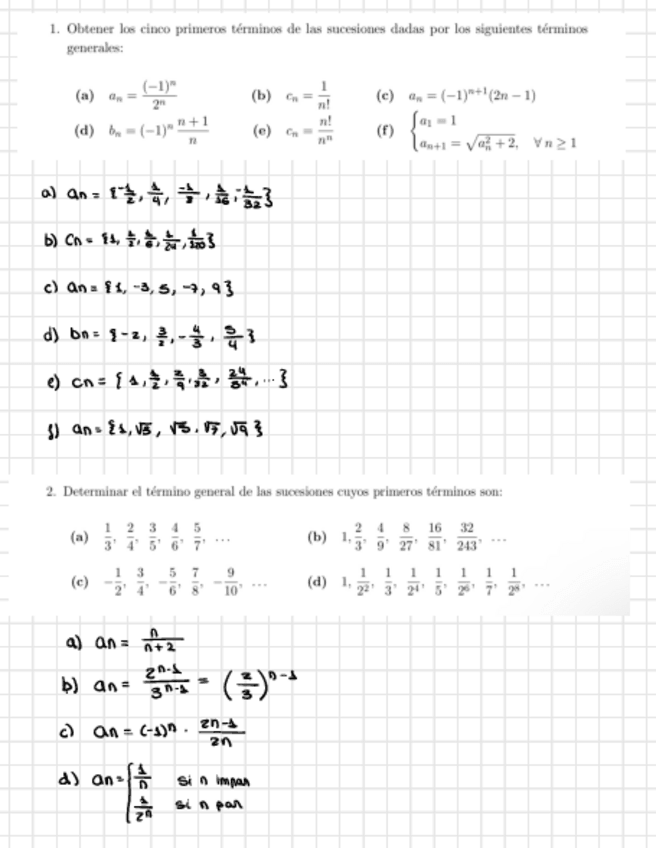 1. Obtener los cinco primeros términos de las sucesiones dadas por los siguientes términos
generales:
(a) aₙ = (-1)ⁿ/2ⁿ (b) cₙ = 1/n! (c) aₙ = (-1)ⁿ⁺¹(2n - 1)
(d) bₙ = (-1)ⁿ (n + 1)/n (e) cₙ = n!/nⁿ (f) { a₁ = 1
aₙ₊₁ = √(aₙ² + 2), ∀ n ≥ 1
a) an = {-1/2, 1/4, -1/8, 1/16, -1/32}
b) Cn = {1, 1/2, 1/6, 1/24, 1/120}
c) an = {1, -3, 5, -7, 9}
d) bn = {-2, 3/2, -4/3, 5/4}
e) cn = {1, 1/2, 2/9, 3/32, ...}
f) an = {1, √3, √5, √7, √9}
2. Determinar el término general de las sucesiones cuyos primeros términos son:
(a) 1/3, 2/4, 3/5, 4/6, 5/7, ... (b) 1, 2/3, 4/9, 8/27, 16/81, 32/243, ...
(c) -1/2, 3/4, -5/6, 7/8, -9/10, ... (d) 1, 1/2², 1/3, 1/2⁴, 1/5, 1/2⁶, 1/7, 1/2⁸, ...
a) an = n/(n+2)
b) an = 2ⁿ⁻¹/3ⁿ⁻¹ = (2/3)ⁿ⁻¹
c) an = (-1)ⁿ · (2n-1)/2n
d) an = { 1/n si n impar
1/2ⁿ si n par